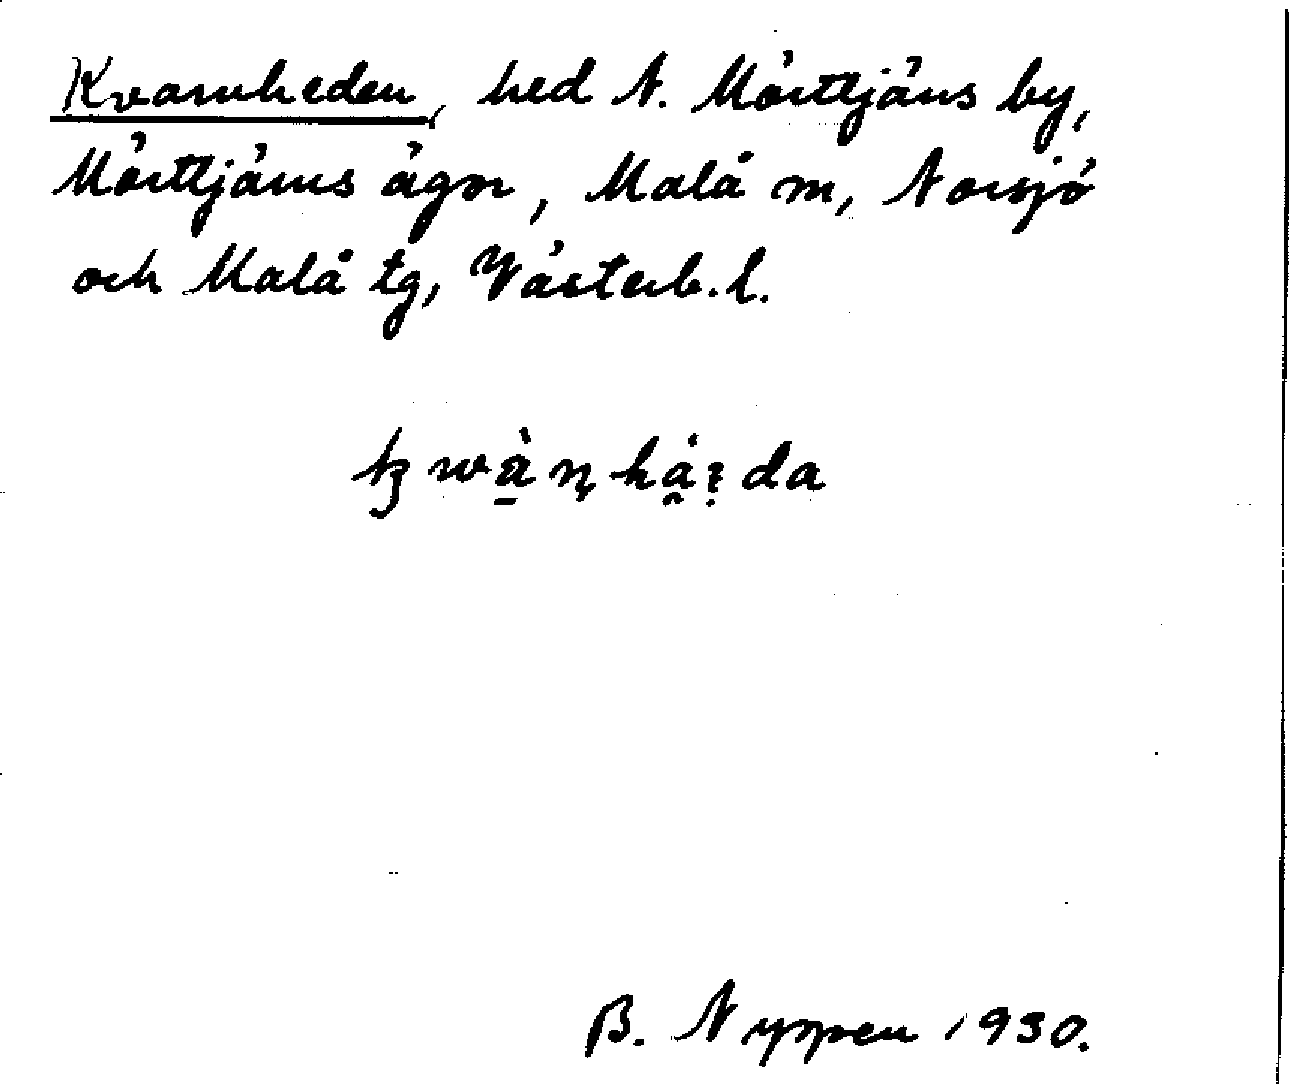 Kvarnheden, hed N. Mörttjärns by,
Mörttjärns ägor, Malå sn, Norsjö
och Malå tg, Västerb. l.
B. Nyppen 1930.